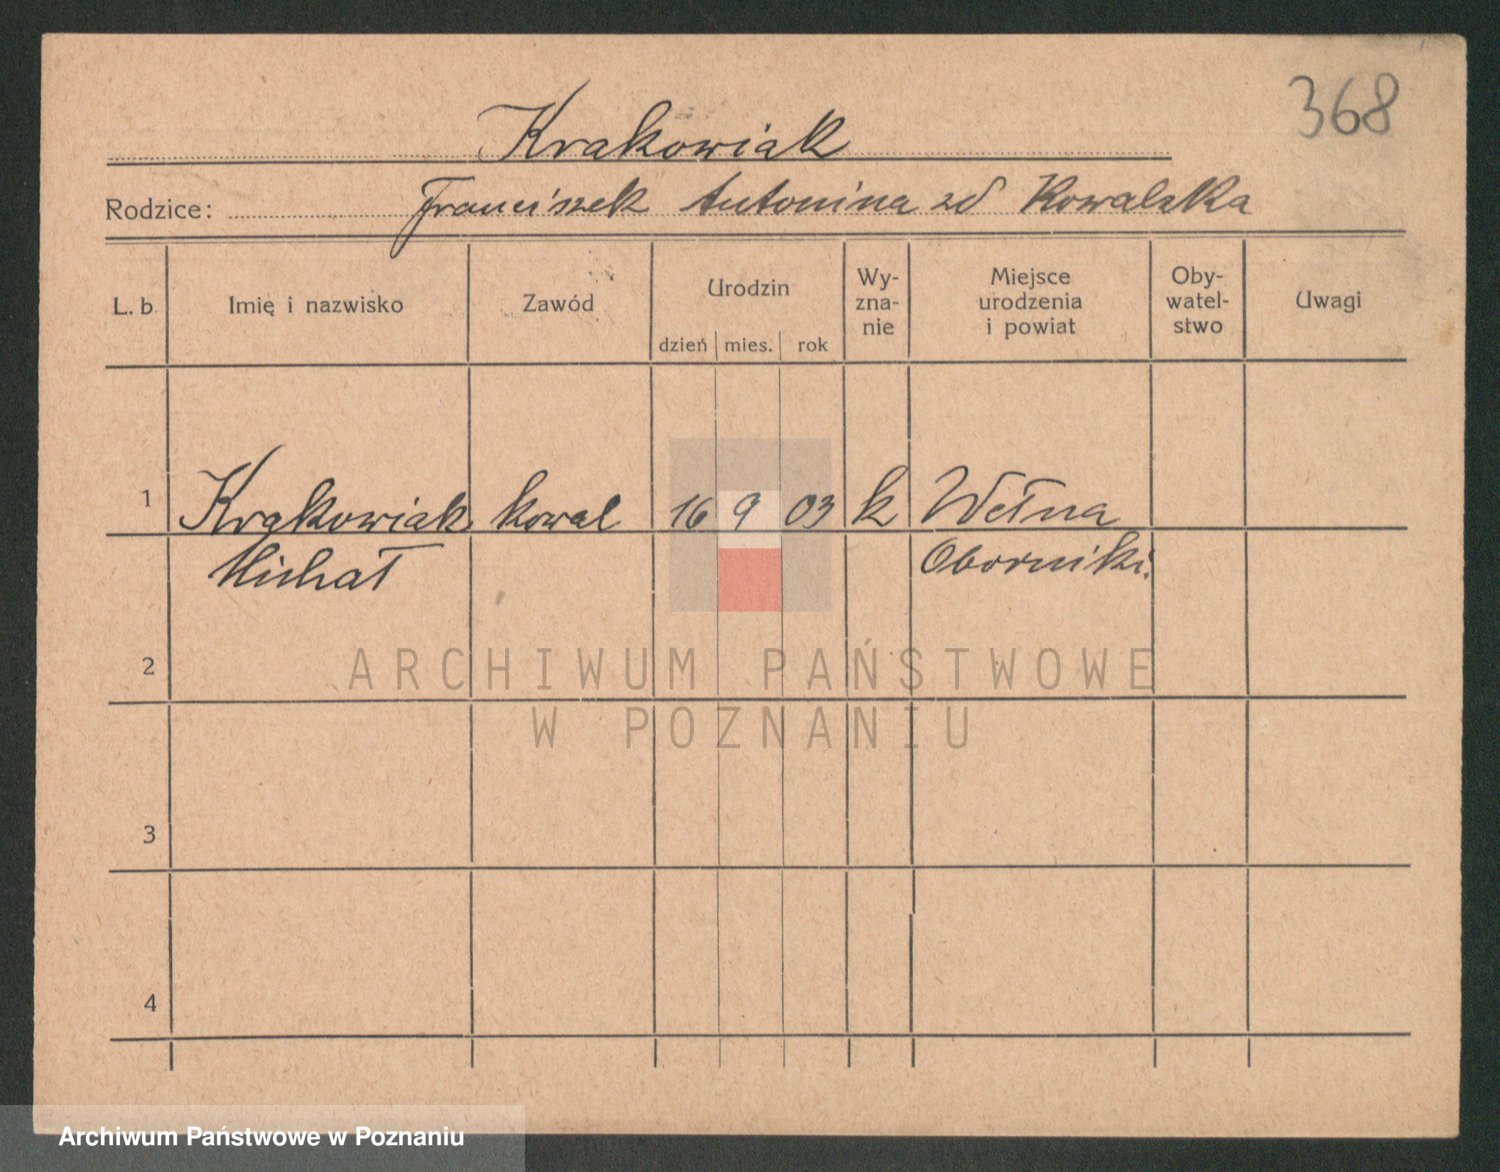 368
Krakowiak
Rodzice: Franciszek Antonina zd Kowalska
L. b. Imię i nazwisko Zawód Urodzin dzień mies. rok Wy-zna-nie Miejsce urodzenia i powiat Oby-watel-stwo Uwagi
1 Krakowiak kowal 16 9 03 k Wełna
Michał Oborniki.
2
ARCHIWUM PAŃSTWOWE
W POZNANIU
3
4
Archiwum Państwowe w Poznaniu